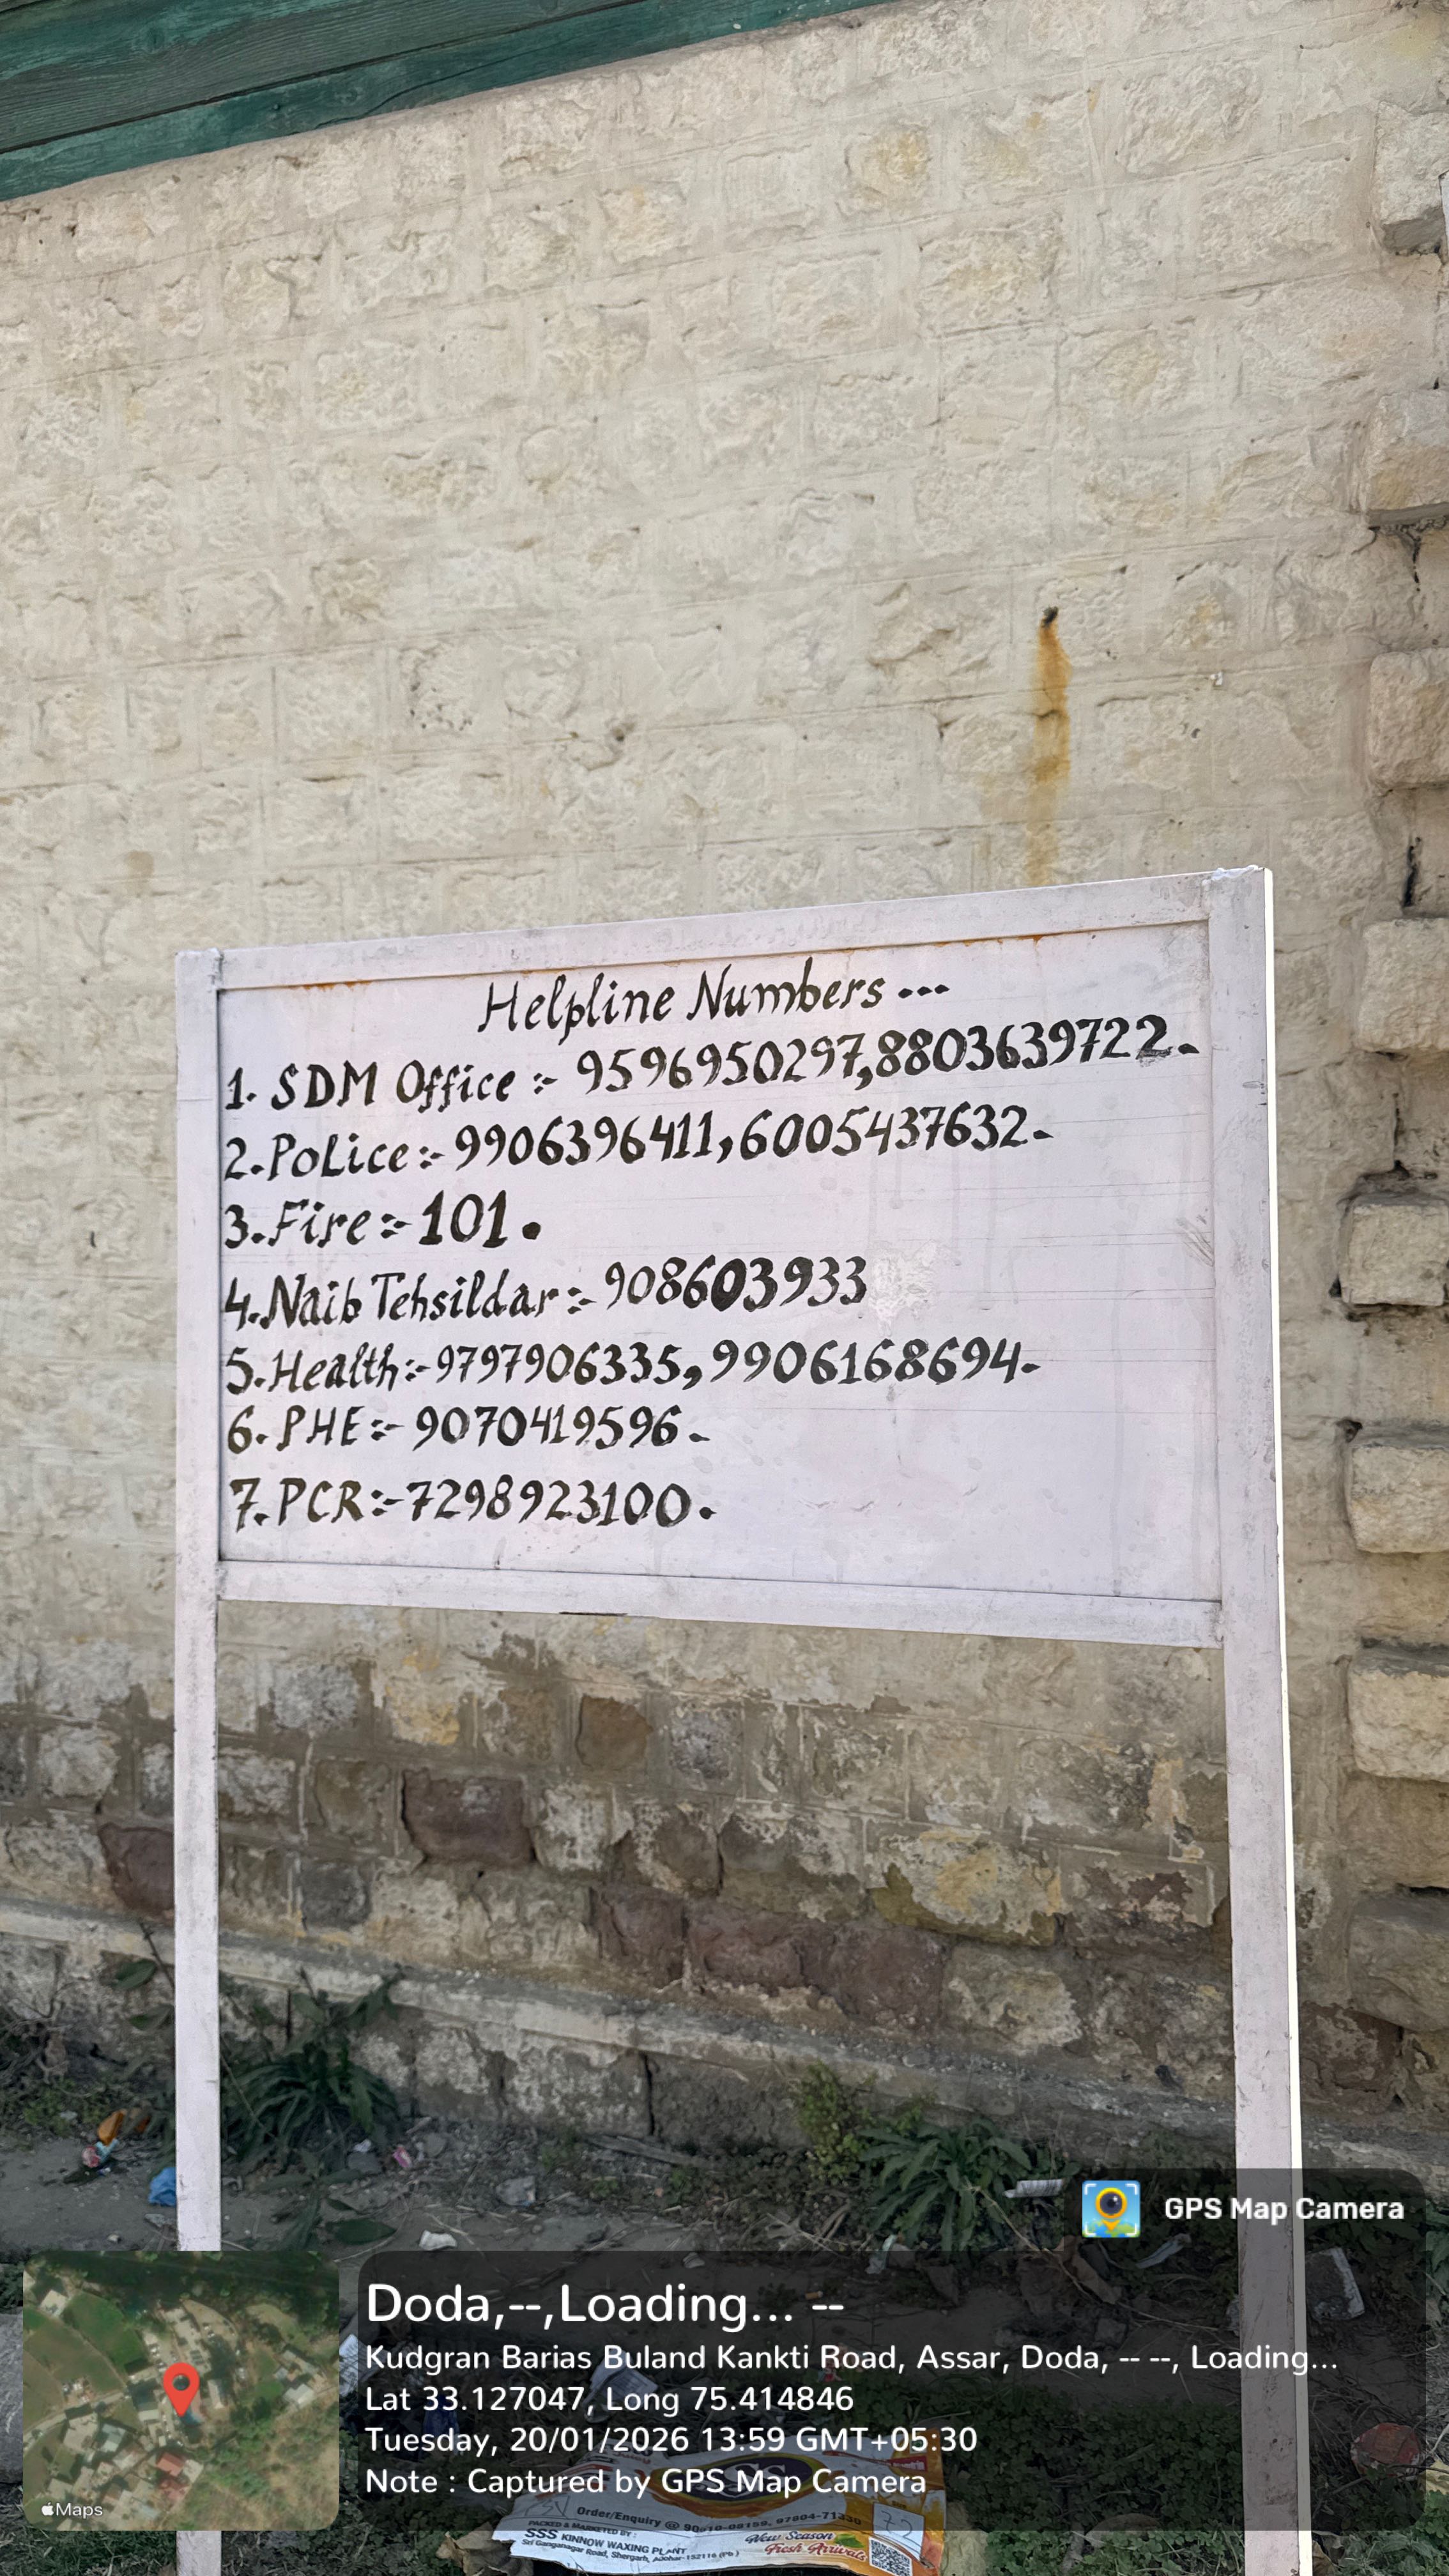 Helpline Numbers...
1. SDM Office :- 9596950297,8803639722.
2.PoLice:- 9906396411,6005437632.
3.Fire:- 101.
4.Naib Tehsildar:- 908603933
5.Health:- 9797906335,9906168694.
6. PHE:- 9070419596.
7.PCR:- 7298923100.
GPS Map Camera
Doda,--,Loading... --
Kudgran Barias Buland Kankti Road, Assar, Doda, -- --, Loading...
Lat 33.127047, Long 75.414846
Tuesday, 20/01/2026 13:59 GMT+05:30
Note : Captured by GPS Map Camera
Maps
Order/Enquiry @
PACKED & MARKETED BY :
SSS KINNOW WAXING PLANT
Sri Ganganagar Road, Shergarh, Abohar-152116 (Pb)
New Season
Fresh Arrivals
72